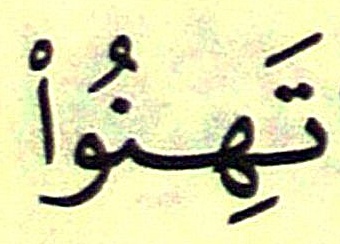 تَهِنُوا۟